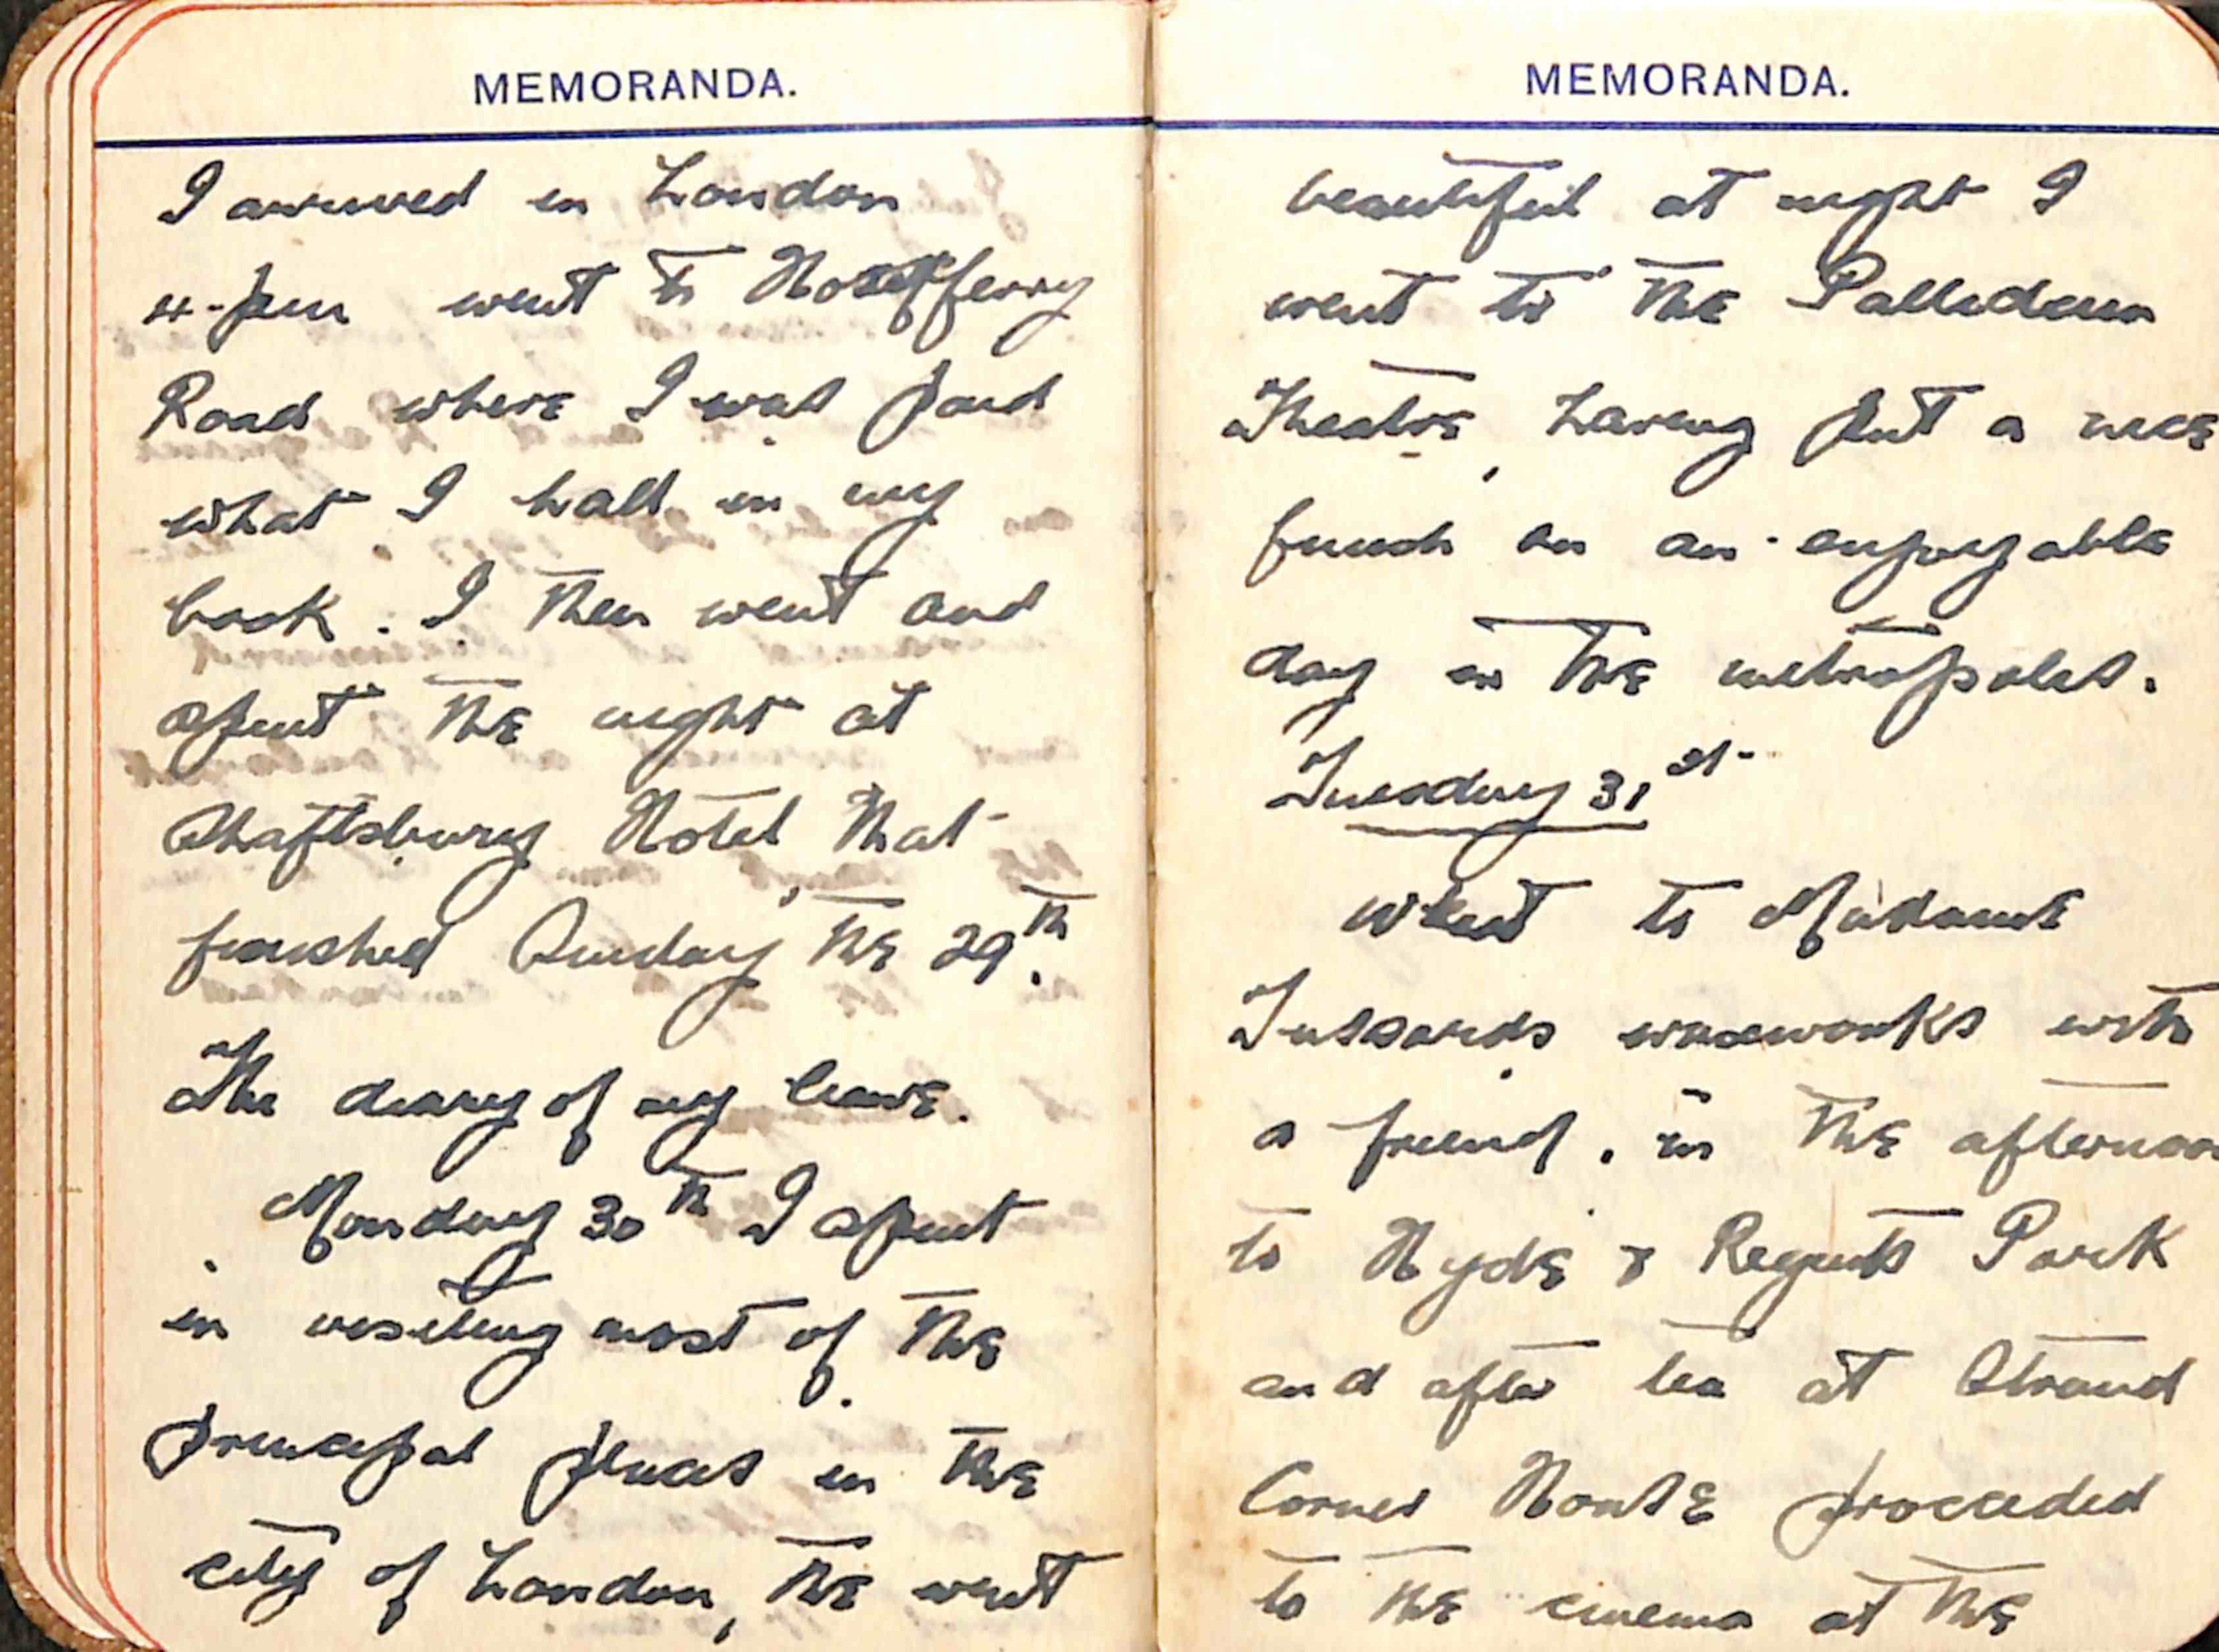 MEMORANDA.
I arrived in London
4-pm went to Horseferry
Road where I was paid
what I had in my
book. I then went and
spent the night at
Shaftsbury Hotel that
finished Sunday the 29th.
The diary of my leave.
Monday 30th I spent
in visiting most of the
principal places in the
city of London, the went
MEMORANDA.
beautiful at night I
went to the Palladium
Theatre, having put a nice
finish on an enjoyable
day in the metropolis.
Tuesday 31st
Went to Madame
Tussards waxworks with
a friend. in the afternoon
to Hyde & Regents Park
and after tea at Strand
Corner House proceeded
to the cinema at the